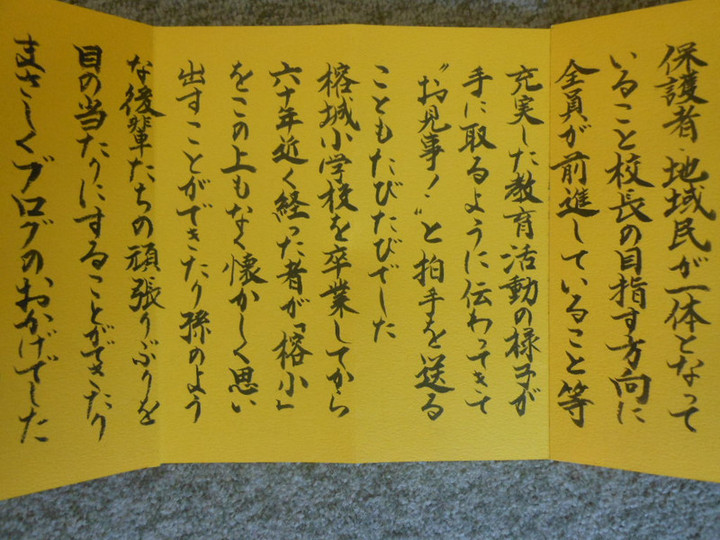 保護者・地域民が一体となって
いること校長の目指す方向に
全員が前進していること等
充実した教育活動の様子が
手に取るように伝わってきて
〝お見事！〟と拍手を送る
こともたびたびでした
榕城小学校を卒業してから
六十年近く経った者が「榕小」
をこの上もなく懐かしく思い
出すことができたり孫のよう
な後輩たちの頑張りぶりを
目の当たりにすることができたり
まさしくブログのおかげでした